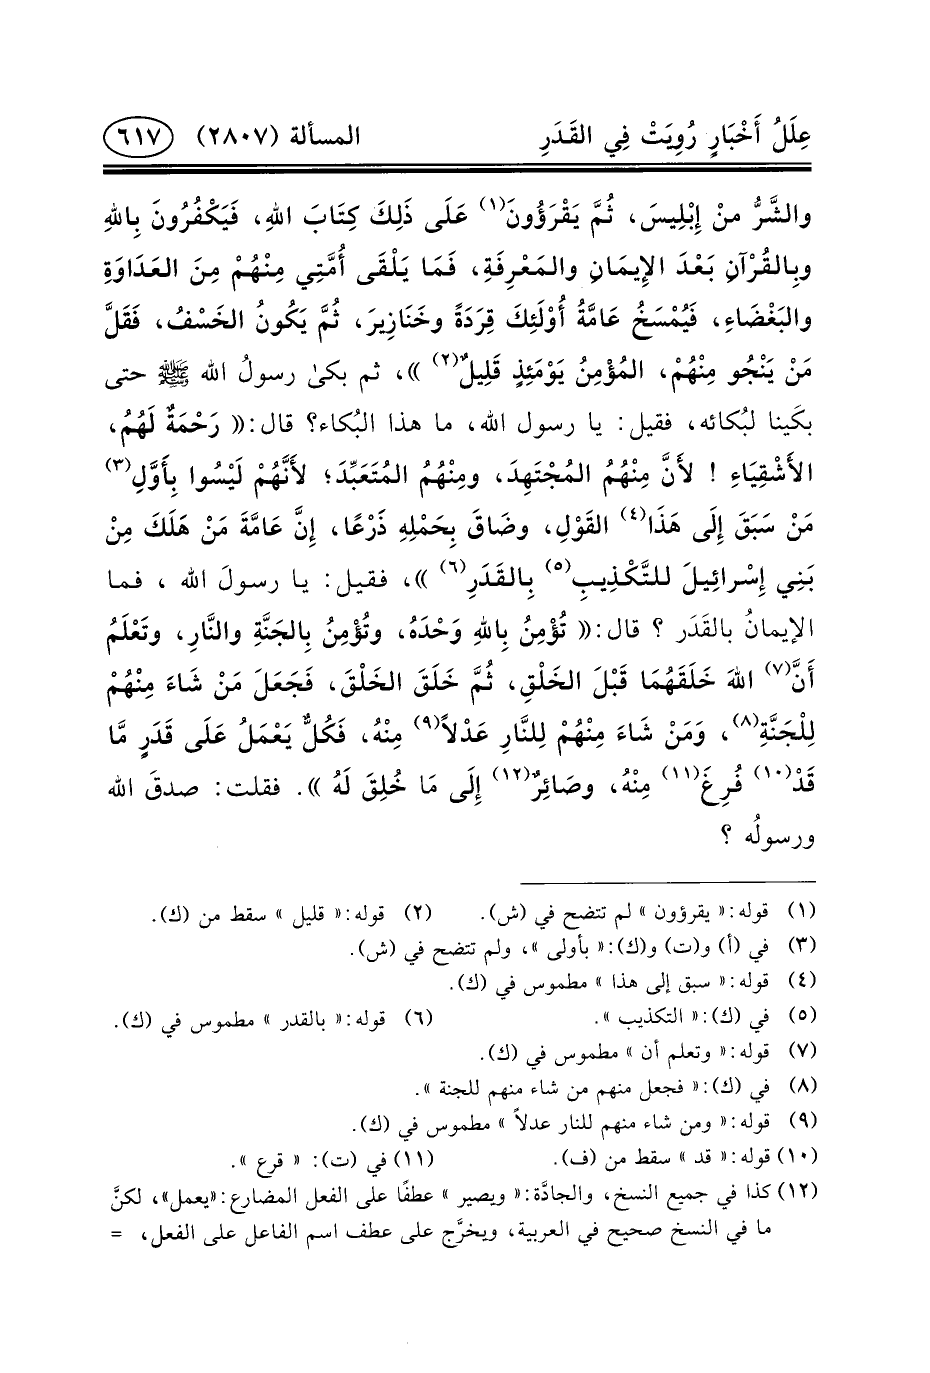 عِلَلُ أَخْبَارٍ رُوِيَتْ فِي القَدَرِ المسألة (٢٨٠٧) ٦١٧
والشَّرُّ منْ إِبْلِيسَ، ثُمَّ يَقْرَؤُونَ(١) عَلَى ذَلِكَ كِتَابَ اللهِ، فَيَكْفُرُونَ بِاللهِ
وبِالقُرْآنِ بَعْدَ الإِيمَانِ والمَعْرِفَةِ، فَمَا يَلْقَى أُمَّتِي مِنْهُمْ مِنَ العَدَاوَةِ
والبَغْضَاءِ، فَيُمْسَخُ عَامَّةُ أُوْلَئِكَ قِرَدَةً وخَنَازِيرَ، ثُمَّ يَكُونُ الخَسْفُ، فَقَلَّ
مَنْ يَنْجُو مِنْهُمْ، المُؤْمِنُ يَوْمَئِذٍ قَلِيلٌ(٢) »، ثم بكىٰ رسولُ الله ﷺ حتى
بكَينا لبُكائه، فقيل: يا رسول الله، ما هذا البُكاء؟ قال:« رَحْمَةٌ لَهُمُ،
الأَشْقِيَاءِ ! لأَنَّ مِنْهُمُ المُجْتَهِدَ، ومِنْهُمُ المُتَعَبِّدَ؛ لأَنَّهُمْ لَيْسُوا بِأَوَّلِ(٣)
مَنْ سَبَقَ إِلَى هَذَا(٤) القَوْلِ، وضَاقَ بِحَمْلِهِ ذَرْعًا، إِنَّ عَامَّةَ مَنْ هَلَكَ مِنْ
بَنِي إِسْرائِيلَ للتَّكْذِيبِ(٥) بِالقَدَرِ(٦) »، فقيل: يا رسولَ الله ، فما
الإيمانُ بالقَدَر ؟ قال:« تُؤْمِنُ بِاللهِ وَحْدَهُ، وتُؤْمِنُ بِالجَنَّةِ والنَّارِ، وتَعْلَمُ
أَنَّ(٧) اللهَ خَلَقَهُمَا قَبْلَ الخَلْقِ، ثُمَّ خَلَقَ الخَلْقَ، فَجَعَلَ مَنْ شَاءَ مِنْهُمْ
لِلْجَنَّةِ(٨)، وَمَنْ شَاءَ مِنْهُمْ لِلنَّارِ عَدْلاً(٩) مِنْهُ، فَكُلٌّ يَعْمَلُ عَلَى قَدَرٍ مَّا
قَدْ(١٠) فُرِغَ(١١) مِنْهُ، وصَائِرٌ(١٢) إِلَى مَا خُلِقَ لَهُ ». فقلت: صدقَ الله
ورسولُه ؟
(١) قوله:« يقرؤون » لم تتضح في (ش). (٢) قوله:« قليل » سقط من (ك).
(٣) في (أ) و(ت) و(ك):« بأولى »، ولم تتضح في (ش).
(٤) قوله:« سبق إلى هذا » مطموس في (ك).
(٥) في (ك):« التكذيب ». (٦) قوله:« بالقدر » مطموس في (ك).
(٧) قوله:« وتعلم أن » مطموس في (ك).
(٨) في (ك):« فجعل منهم من شاء منهم للجنة ».
(٩) قوله:« ومن شاء منهم للنار عدلاً » مطموس في (ك).
(١٠) قوله:« قد » سقط من (ف). (١١) في (ت): « قرع ».
(١٢) كذا في جميع النسخ، والجادَّة:« ويصير » عطفًا على الفعل المضارع:«يعمل»، لكنَّ
ما في النسخ صحيح في العربية، ويخرَّج على عطف اسم الفاعل على الفعل، =